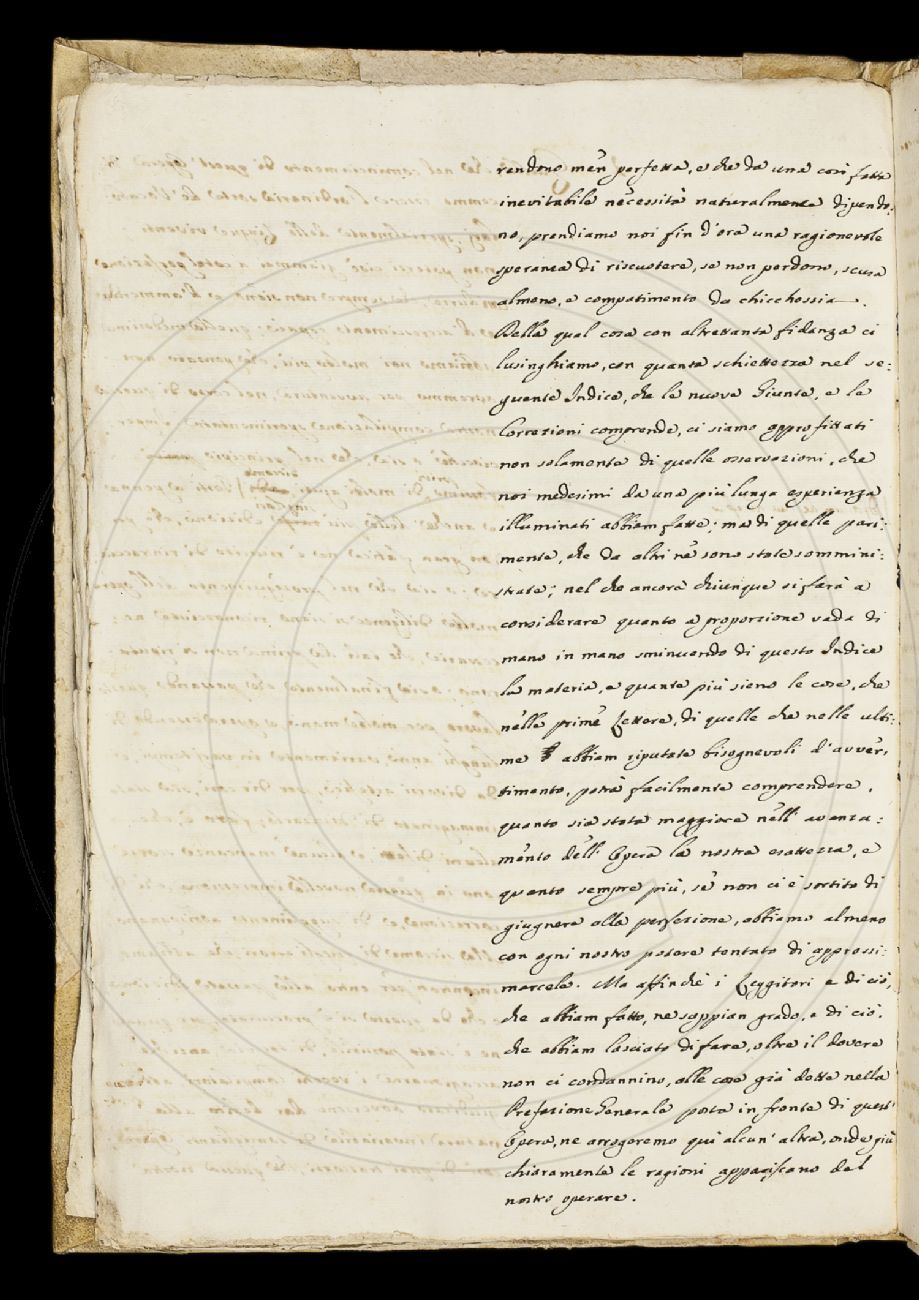 rendono men perfetta, e che da una così fatta
inevitabile necessità naturalmente dipendo:
no, prendiamo noi fin d'ora una ragionevole
speranza di riscuotere, se non perdono, scusa
almeno, e compatimento da chicchessia.
Della qual cosa con altrettanta fidanza ci
lusinghiamo, con quanta schiettezza nel se:
guente Indice, che le nuove Giunte, e le
Correzioni comprende, ci siamo approfittati
non solamente di quelle osservazioni, che
noi medesimi da una più lunga esperienza
illuminati abbiam fatte; ma di quelle pari:
mente, che da altri ne sono state sommini:
strate; nel che ancora chiunque si farà a
considerare quanto a proporzione vada di
mano in mano sminuendo di questo Indice
la materia, e quante più sieno le cose, che
nelle prime Lettere, di quelle che nelle ulti:
me abbiam riputate bisognevoli d'avver:
timento, potrà facilmente comprendere,
quanto sia stata maggiore nell' avanza:
mento dell' Opera la nostra esattezza, e
quanto sempre più, se non ci è sortito di
giugnere alla perfezione, abbiamo almeno
con ogni nostro potere tentato di approssi:
marcele. Ma affinchè i Leggitori e di ciò,
che abbiam fatto, ne sappian grado, e di ciò,
che abbiam lasciato di fare, oltre il dovere
non ci condannino, alle cose già dette nella
Prefazione Generale posta in fronte di quest'
Opera, ne arrogeremo qui alcun' altra, onde più
chiaramente le ragioni appariscano del
nostro operare.